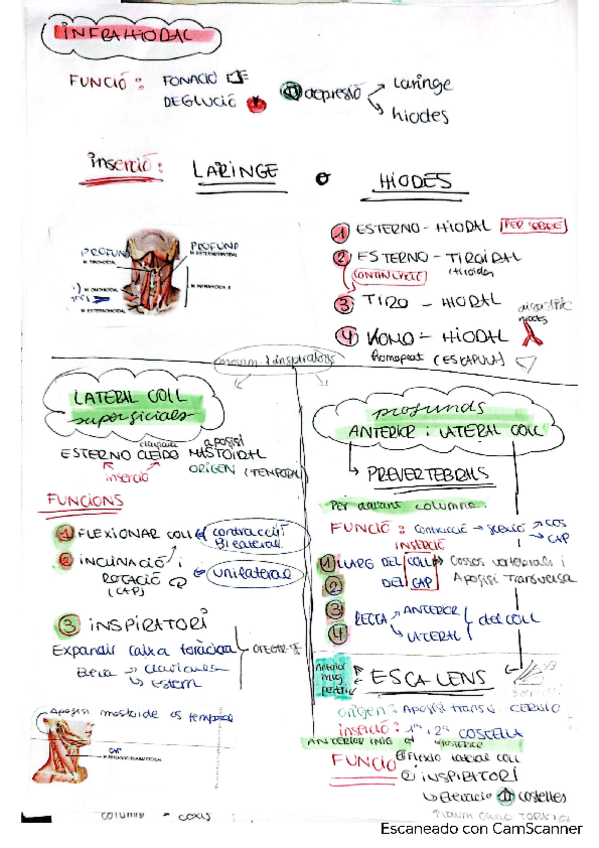 INFRAHIODAL
FUNCIÓ: FONACIÓ
DEGLUCIÓ
depressió
Laringe
hiodes
inserció: LARINGE o HIODES
PROFUND
PROFUND
1 ESTERNO - HIODAL PER SOBRE
2 ESTERNO - TIROIDAL
CONTINUACIÓ
3 TIRO - HIODAL
4 HOMO - HIODAL
(ESCAPULA)
LATERAL COLL
superficials
profunds
ANTERIOR i LATERAL COLL
ESTERNO CLEIDO MASTOIDAL
clavicula
apofisi
inserció
ORIGEN (TEMPORAL)
FUNCIONS
1 FLEXIONAR COLL
contracció
Bilateral
2 INCLINACIÓ i
ROTACIÓ
(CAP)
unilateral
3 INSPIRATORI
Expandir caixa toràcica
Eleva
clavicules
estern
Apofisi mastoide os temporal
PREVERTEBRALS
Per davant columna
FUNCIÓ: contracció
COS
CAP
INSERCIÓ
1 LLARG DEL COLL
Cossos vertebrals i
Apofisi Transversa
2 DEL CAP
3
4 RECTE
ANTERIOR
LATERAL
del COLL
ESCALENS
Anterior
mig
origen: Apofisi transv. CERVIC
inserció: 1ª i 2ª COSTELLA
ANTERIOR MIG
FUNCIÓ
Flexió lateral coll
INSPIRATORI
Elevació costelles
Escaneado con CamScanner